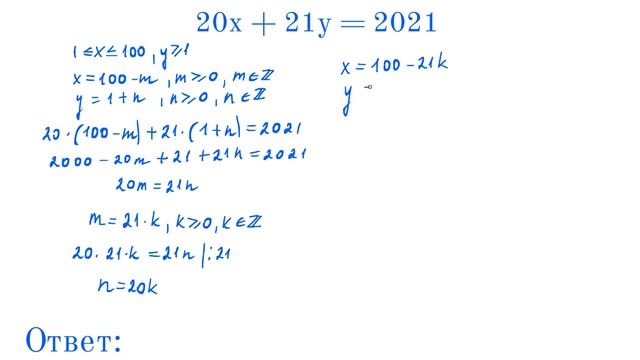 20x + 21y = 2021
1 ≤ x ≤ 100 , y ≥ 1
x = 100 - m , m ≥ 0 , m ∈ ℤ
y = 1 + n , n ≥ 0 , n ∈ ℤ
20 · (100 - m) + 21 · (1 + n) = 2021
2000 - 20m + 21 + 21n = 2021
20m = 21n
m = 21 · k , k ≥ 0 , k ∈ ℤ
20 · 21 · k = 21n |: 21
n = 20k
x = 100 - 21k
y
Ответ: